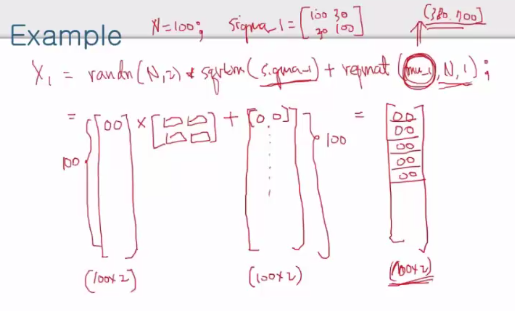 Example
N=100; sigma_1 = [100 30
30 100]
[380, 700]
X1 = randn(N,2) * sqrtm(sigma_1) + repmat(mu_1, N, 1);
= 100 [00] × [ ] + [0 0] 100 = [00
00
00
00
00]
(100x2) (100x2) (100x2)